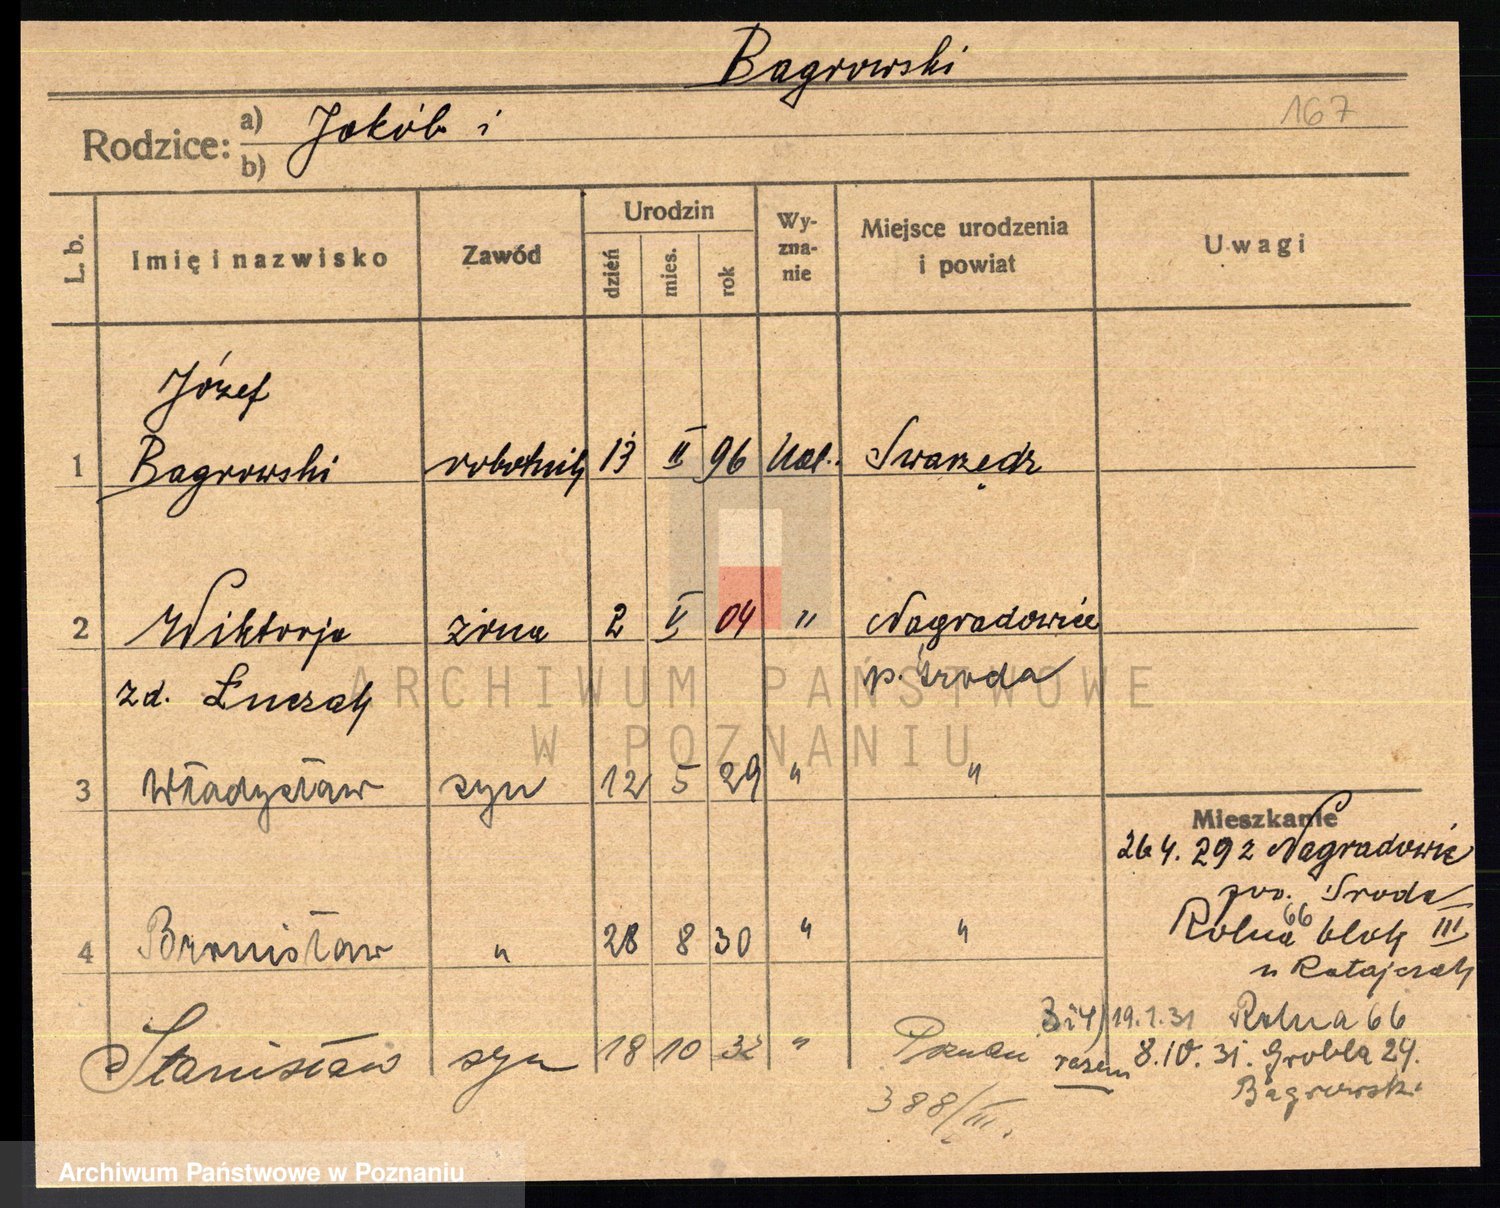 Bagrowski
167
Rodzice: a) Jakób i
b)
L. b. Imię i nazwisko Zawód Urodzin dzień mies. rok Wy-zna-nie Miejsce urodzenia i powiat Uwagi
Józef
1 Bagrowski robotnik 13 II 96 kat. Swarzędz
2 Wiktorja żona 2 V 04 " Nagradowice
zd. Łuczak p. Środa
ARCHIWUM PAŃSTWOWE
W POZNANIU
3 Władysław syn 12 5 29 " "
Mieszkanie
26 4. 29 z Nagradowic
pow. Środa
Rolna 66 blok III
4 Bronisław " 28 8 30 " "
u Ratajczak
3 i 4) 19.1.31 Rolna 66
Stanisław syn 18 10 32 " Poznań razem 8.IV.31. Grobla 24.
Bagrowski
388/III.
Archiwum Państwowe w Poznaniu